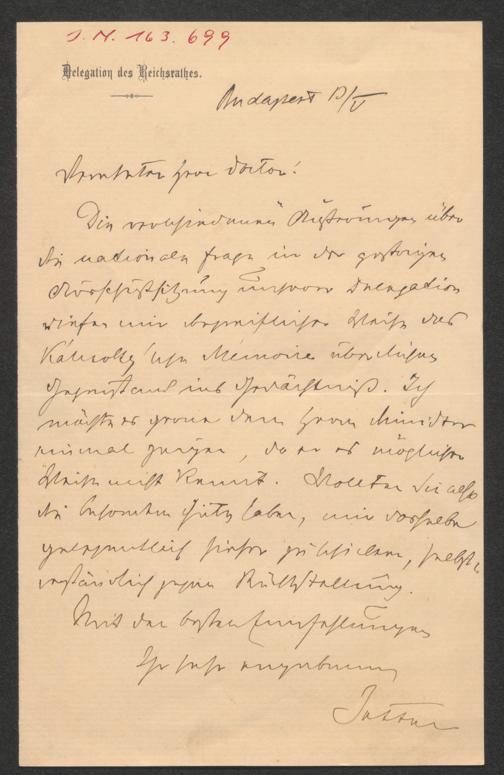 J. N. 163.699
Delegation des Reichsrathes.
Budapest 13/V
Verehrter Herr Doctor!
Die verschiedenen Äußerungen über
die nationale Frage in der gestrigen
Ausschußsitzung unserer Delegation
riefen mir begreiflicher Weise das
Kálnoky'sche Mémoire über diesen
Gegenstand ins Gedächtniß. Ich
möchte es gerne dem Herrn Minister
einmal zeigen, da er es möglicher
Weise nicht kennt. Wollten Sie also
die besondere Güte haben, mir dasselbe
gelegentlich hieher zu schicken, selbst-
verständlich gegen Rückstellung.
Mit den besten Empfehlungen
Ihr sehr ergebener